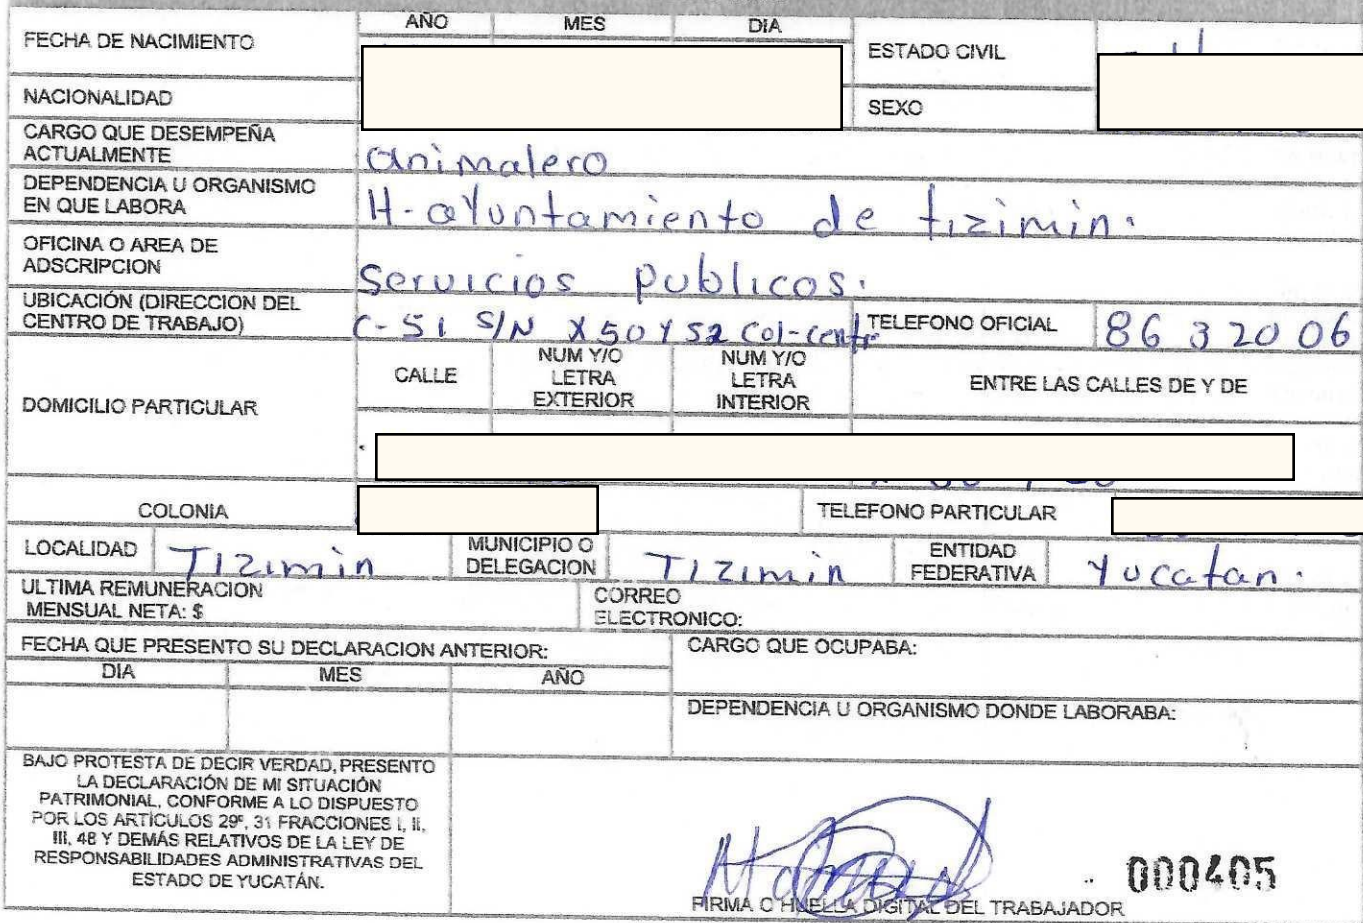 FECHA DE NACIMIENTO AÑO MES DIA ESTADO CIVIL
NACIONALIDAD SEXO
CARGO QUE DESEMPEÑA
ACTUALMENTE animalero
DEPENDENCIA U ORGANISMO
EN QUE LABORA H-aYuntamiento de tizimin.
OFICINA O AREA DE
ADSCRIPCION Servicios publicos.
UBICACIÓN (DIRECCION DEL
CENTRO DE TRABAJO) C-51 S/N X50 Y 52 Col-centr TELEFONO OFICIAL 86 3 20 06
DOMICILIO PARTICULAR CALLE NUM Y/O
LETRA
EXTERIOR NUM Y/O
LETRA
INTERIOR ENTRE LAS CALLES DE Y DE
COLONIA TELEFONO PARTICULAR
LOCALIDAD Tizimin MUNICIPIO O
DELEGACION Tizimin ENTIDAD
FEDERATIVA Yucatan.
ULTIMA REMUNERACION
MENSUAL NETA: $ CORREO
ELECTRONICO:
FECHA QUE PRESENTO SU DECLARACION ANTERIOR: CARGO QUE OCUPABA:
DIA MES AÑO
DEPENDENCIA U ORGANISMO DONDE LABORABA:
BAJO PROTESTA DE DECIR VERDAD, PRESENTO
LA DECLARACIÓN DE MI SITUACIÓN
PATRIMONIAL, CONFORME A LO DISPUESTO
POR LOS ARTÍCULOS 29º, 31 FRACCIONES I, II,
III, 48 Y DEMÁS RELATIVOS DE LA LEY DE
RESPONSABILIDADES ADMINISTRATIVAS DEL
ESTADO DE YUCATÁN.
000405
FIRMA O HUELLA DIGITAL DEL TRABAJADOR